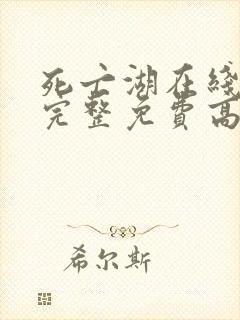 死亡湖在线
完整免費高
希尔斯